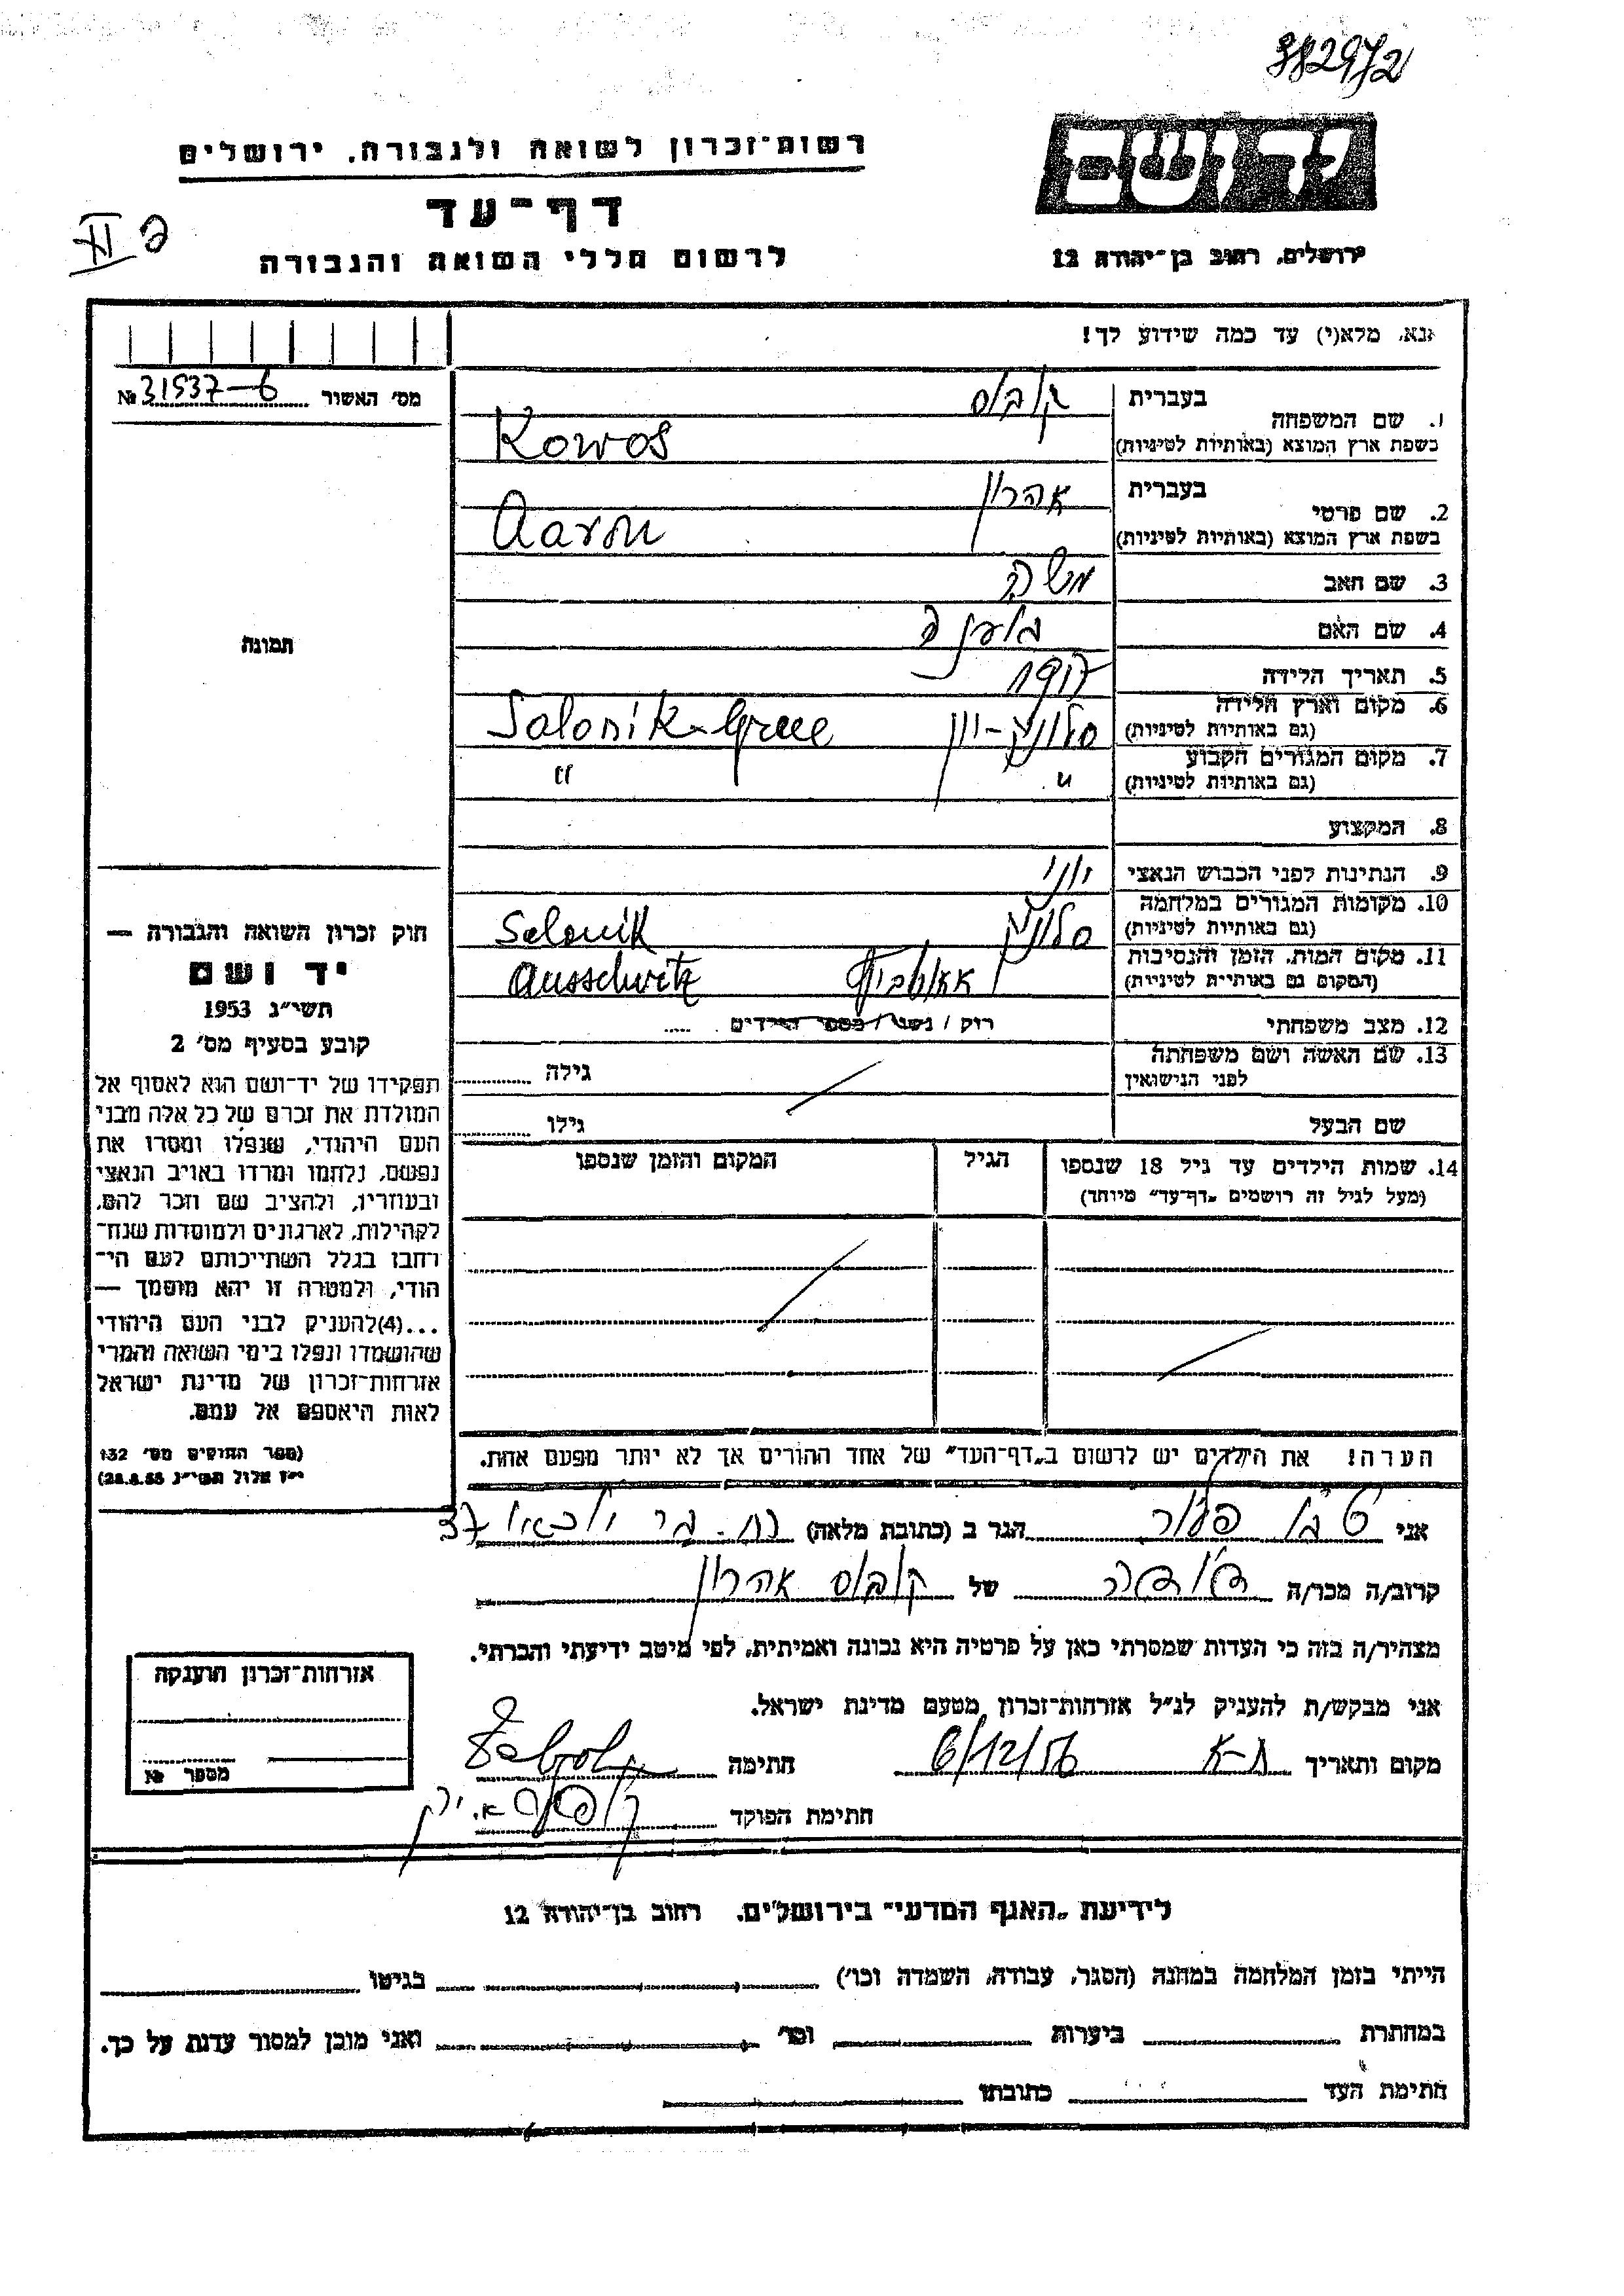 882972
יד ושם
רשות־זכרון לשואה ולגבורה, ירושלים
דף־עד
ירושלים, רחוב בן־יהודה 12
לרשום חללי השואה והגבורה
נא, מלא(י) עד כמה שידוע לך!
מס׳ האשור № 31537-6
1. שם המשפחה בעברית קובוס
בשפת ארץ המוצא (באותיות לטיניות) Kowos
2. שם פרטי בעברית אהרון
בשפת ארץ המוצא (באותיות לטיניות) Aaron
3. שם האב משה
4. שם האם
5. תאריך הלידה
6. מקום וארץ הלידה (גם באותיות לטיניות) סלוניק-יון Salonik-Greece
7. מקום המגורים הקבוע (גם באותיות לטיניות) " "
8. המקצוע
9. הנתינות לפני הכבוש הנאצי יוני
10. מקומות המגורים במלחמה (גם באותיות לטיניות) סלוניק Salonik
11. מקום המות, הזמן והנסיבות (המקום גם באותיות לטיניות) אאושביץ Ausschwitz
12. מצב משפחתי רווק / נשוי / מספר הילדים
13. שם האשה ושם משפחתה לפני הנישואין גילה
שם הבעל גילו
14. שמות הילדים עד גיל 18 שנספו הגיל המקום והזמן שנספו
(מעל לגיל זה רושמים „דף־עד״ מיוחד)
הערה! את הילדים יש לרשום ב„דף־העד״ של אחד ההורים אך לא יותר מפעם אחת.
תמונה
חוק זכרון השואה והגבורה —
יד ושם
תשי״ג 1953
קובע בסעיף מס׳ 2
תפקידו של יד־ושם הוא לאסוף אל
המולדת את זכרם של כל אלה מבני
העם היהודי, שנפלו ומסרו את
נפשם, נלחמו ומרדו באויב הנאצי
ובעוזריו, ולהציב שם וזכר להם,
לקהילות, לארגונים ולמוסדות שנח־
רחבו בגלל השתייכותם לעם הי־
הודי, ולמטרה זו יהא מוסמך —
...(4) להעניק לבני העם היהודי
שהושמדו ונפלו בימי השואה והמרי
אזרחות־זכרון של מדינת ישראל
לאות היאספם אל עמם.
(ספר החוקים מס׳ 132
י״ז אלול תשי״ג 28.8.53)
אני הגר ב (כתובת מלאה) 37
קרוב/ה מכר/ה של קובוס אהרון
מצהיר/ה בזה כי העדות שמסרתי כאן על פרטיה היא נכונה ואמיתית, לפי מיטב ידיעתי והכרתי.
אני מבקש/ת להעניק לנ״ל אזרחות־זכרון מטעם מדינת ישראל.
מקום ותאריך ת-א 6/12/56 חתימה
חתימת הפוקד
אזרחות־זכרון הוענקה
מספר №
לידיעת „האגף המדעי״ בירושלים, רחוב בן־יהודה 12
הייתי בזמן המלחמה במחנה (הסגר, עבודה, השמדה וכו׳) בגיטו
במחתרת ביערות וכו׳ ואני מוכן למסור עדות על כך.
חתימת העד כתובתו